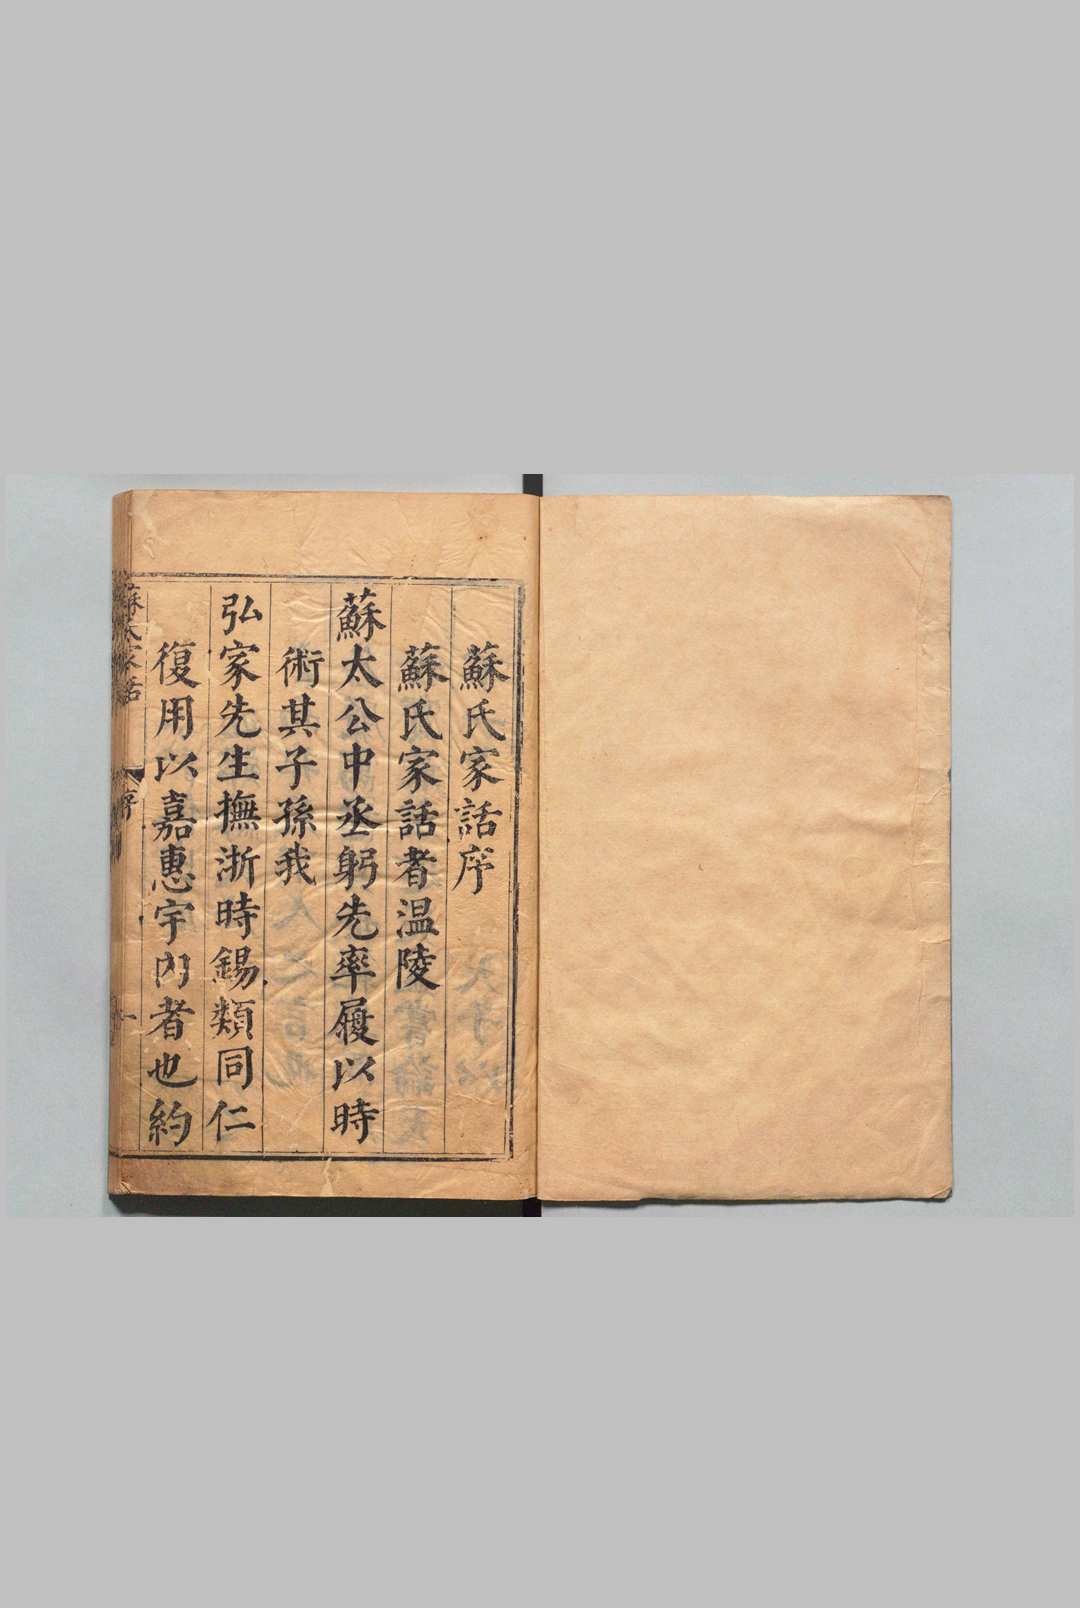 蘇氏家話序
蘇氏家話者溫陵
蘇太公中丞躬先率履以時
術其子孫我
弘家先生撫浙時錫類同仁
復用以嘉惠宇內者也約
蘇氏家話
序
一